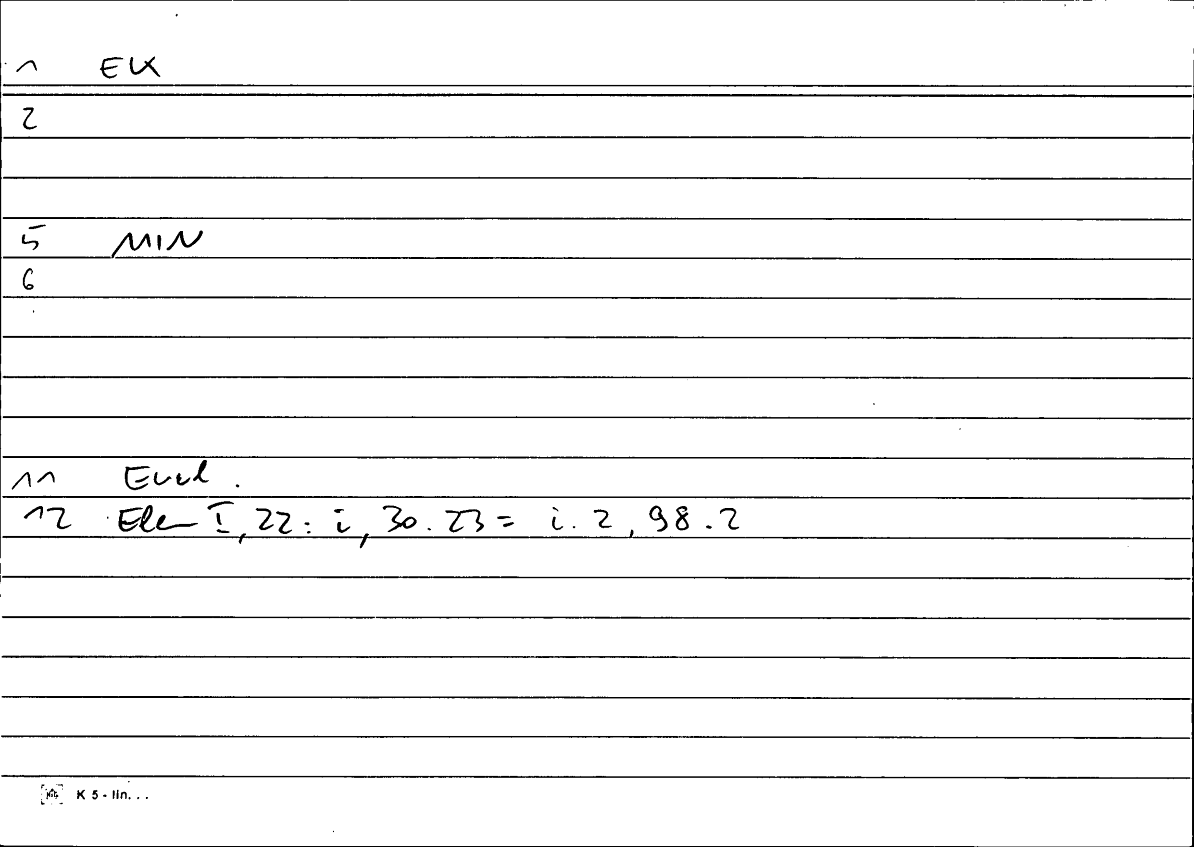 1 EK
2
5 MIN
6
11 Eucl.
12 Elem I, 22: i, 30.23 = i.2, 98.2
K 5 - lin. . .